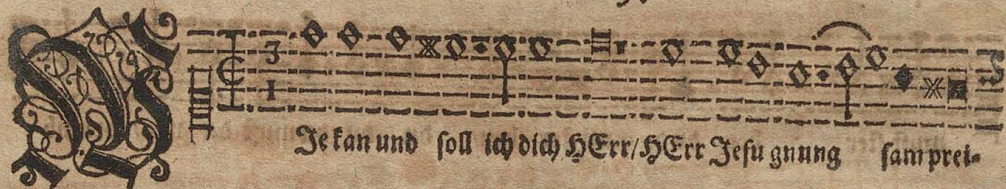 WJe kan und soll ich dich HErr/HErr Jesu gnung sam prei-